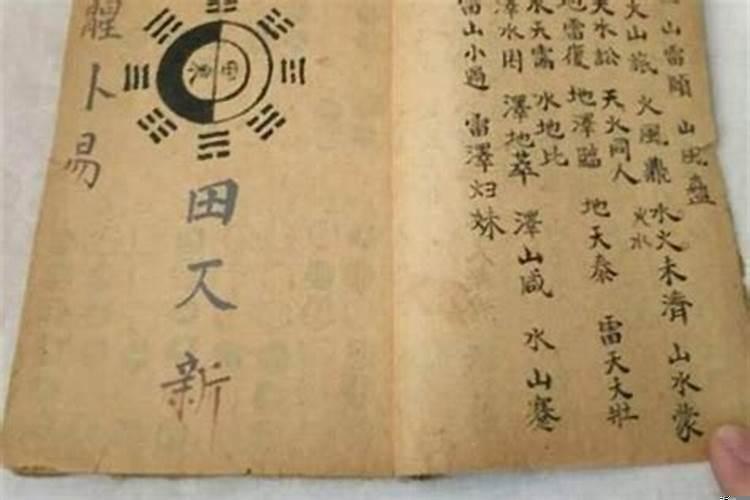 山雷頤 山風蠱
火山旅 火風鼎
水火未濟 山水蒙
火水
天水訟 天火同人
地雷復 地澤臨 地天泰 雷天天壯
水天需 水地比
澤水困 澤地萃 澤山咸 水山蹇
雷山小過 雷澤归妹
田 新
卜易